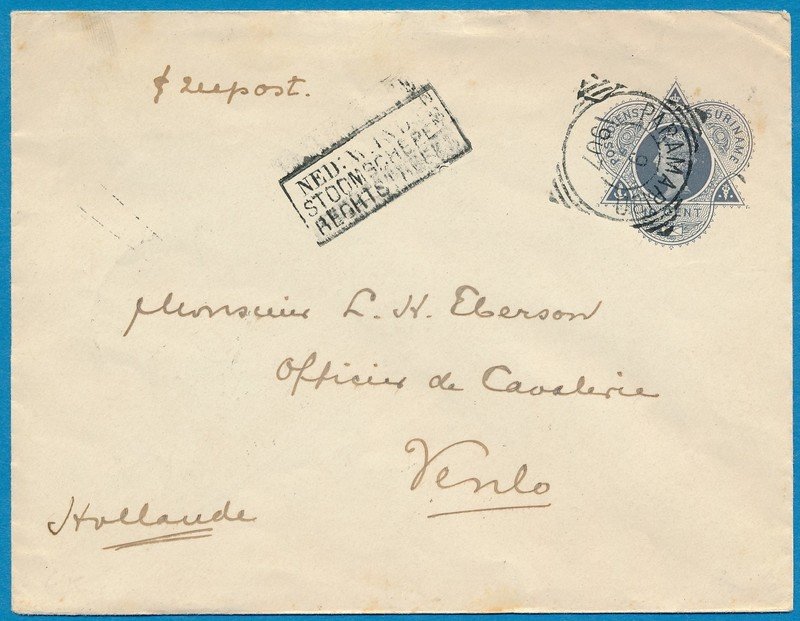 p zeepost.
NED: W. IND:
STOOMSCHEPEN
RECHTSTREEKS
POSTZEGEL SURINAME
CENT
PARAMARIBO
1901
Monsieur L. H. Eberson
Officier de Cavalerie
Venlo
Hollande